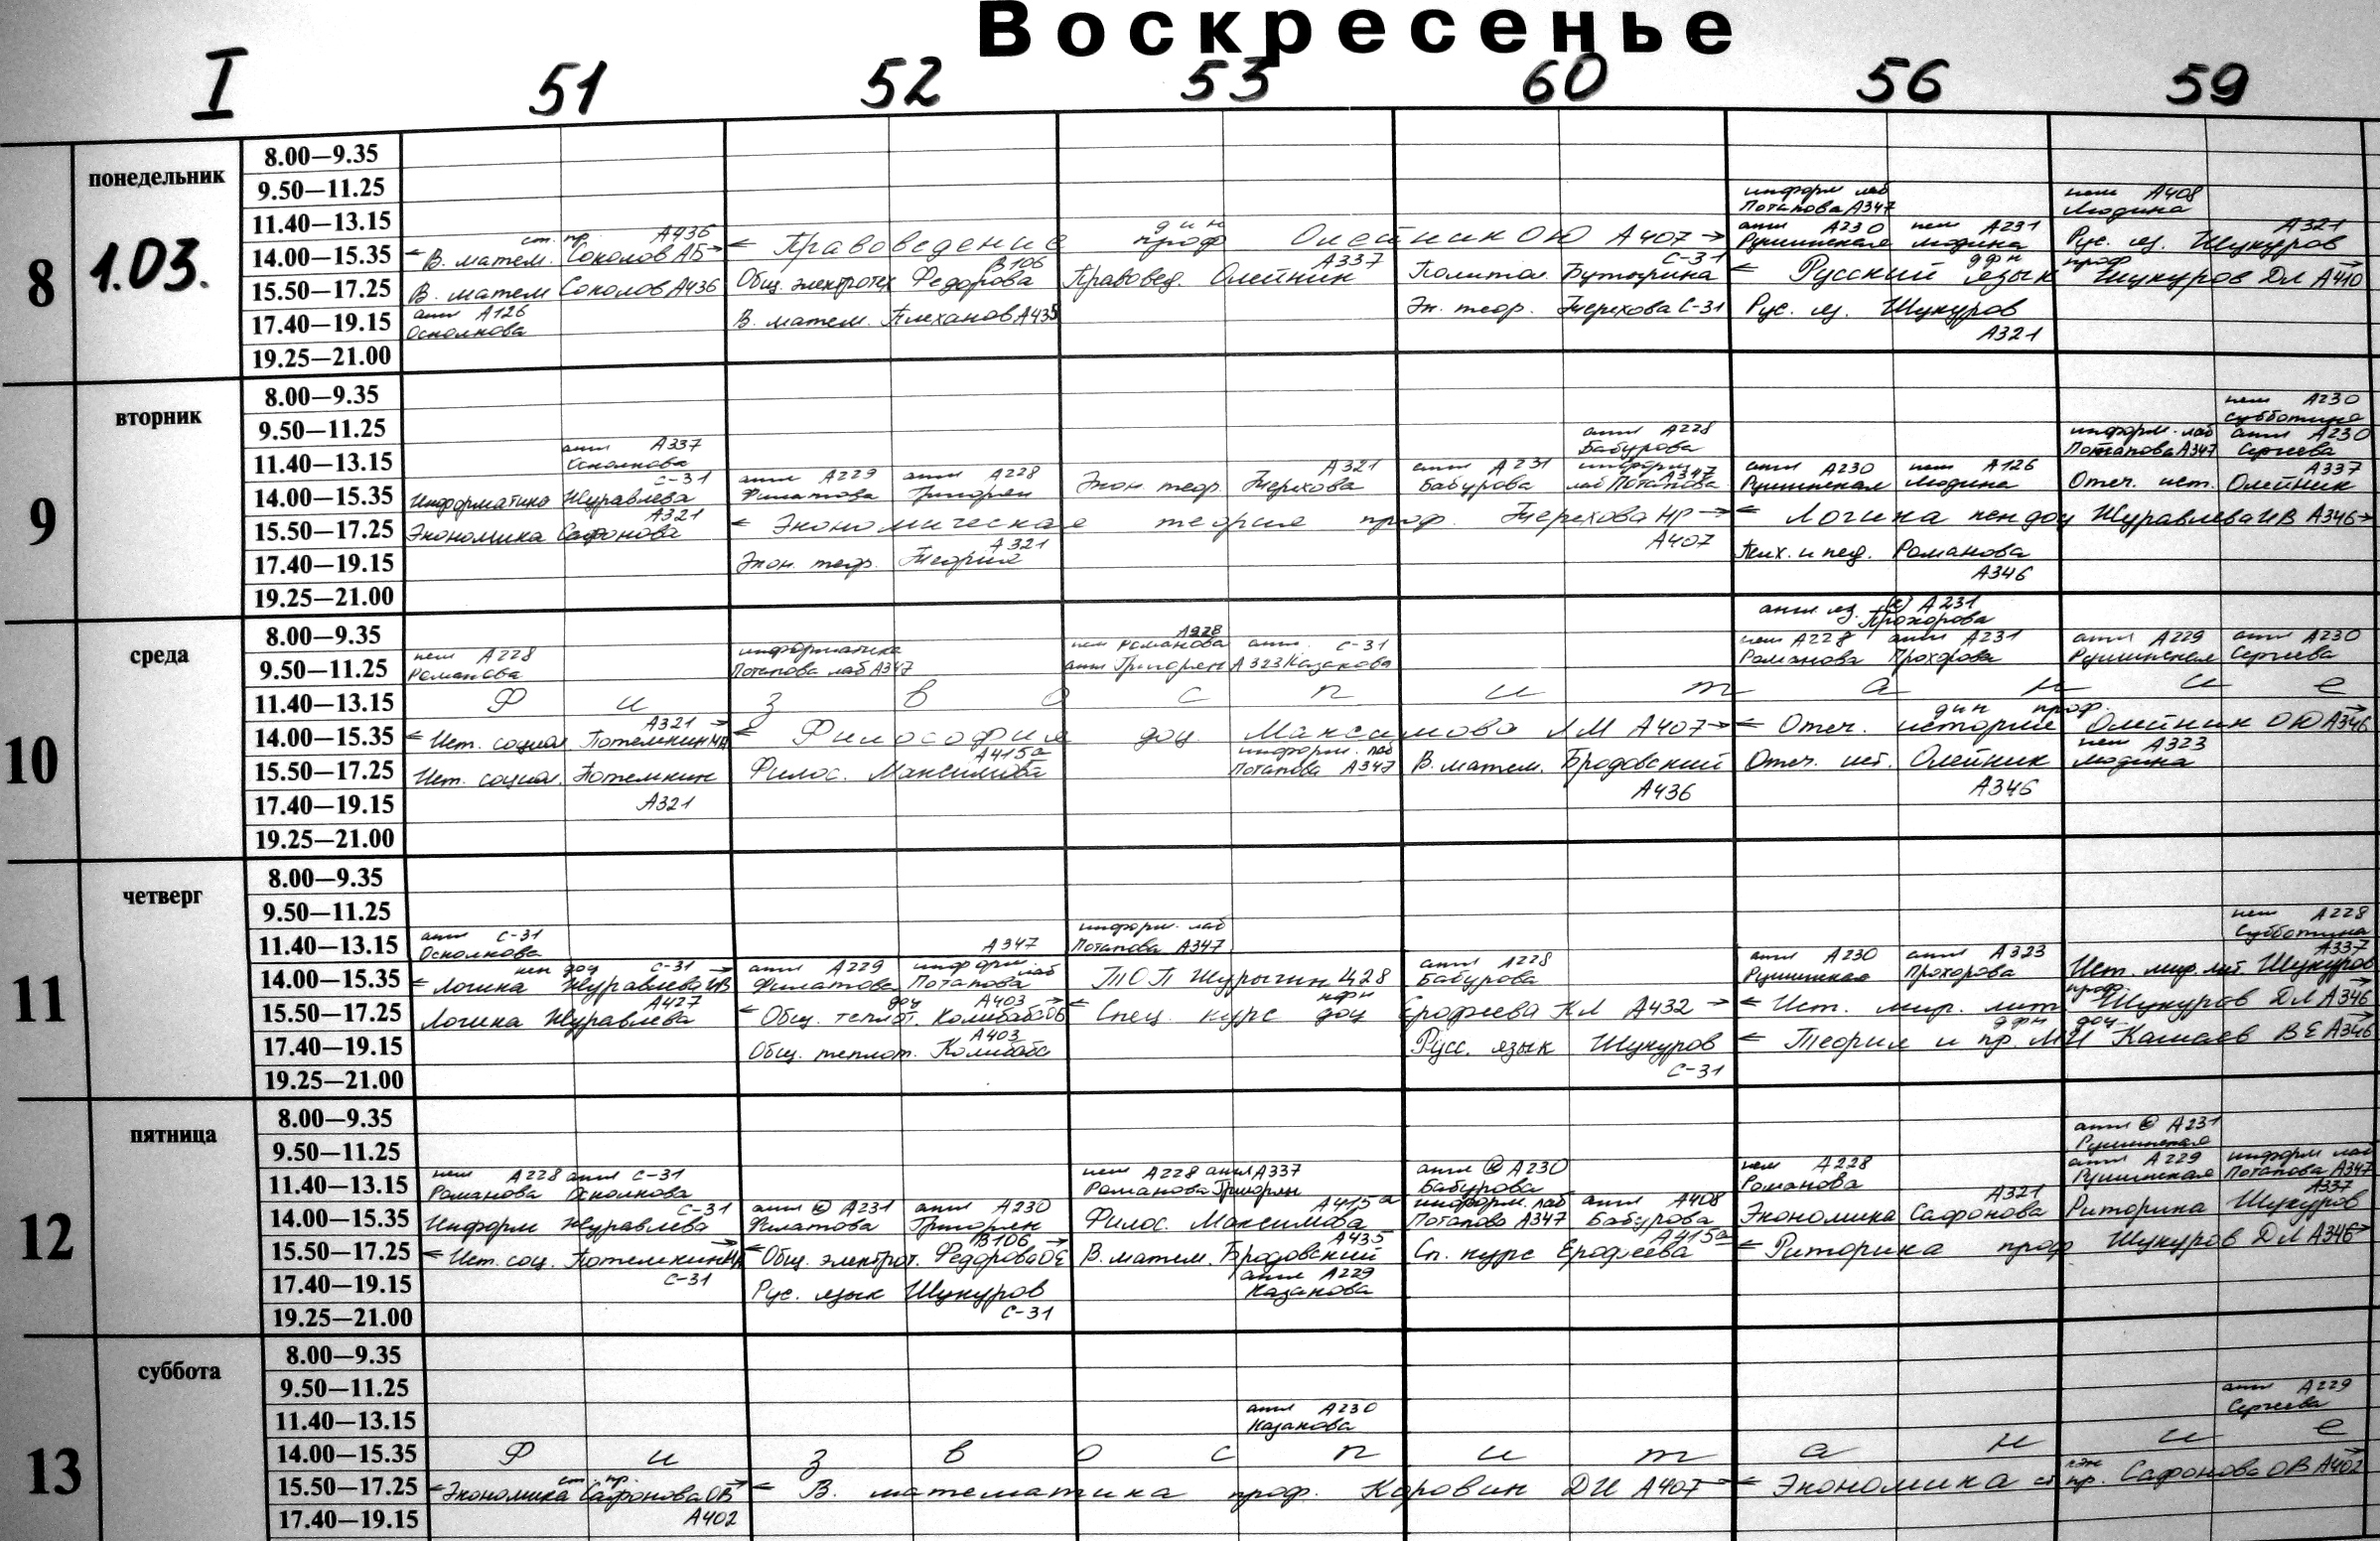 Воскресенье
I 51 52 53 60 56 59
8 понедельник 1.03.
8.00—9.35
9.50—11.25
информ лаб нем А408
11.40—13.15 Потапова А347 Мюдина
ст. пр. А436 дин англ А230 нем А231 А321
14.00—15.35 ← В. матем. Соколов АБ → ← Правоведение проф Олейник ОЮ А407 → Рушинская Мюдина Рус. яз. Шукуров
В106 А337 С-31 дфн проф
15.50—17.25 В. матем Соколов А436 Общ. электротех Федорова Правовед. Олейник Политол. Бутырина ← Русский язык Шукуров ДЛ А410 →
англ А126
17.40—19.15 Осполкова В. матем. Плеханов А435 Эк. теор. Терехова С-31 Рус. яз. Шукуров
А321
19.25—21.00
9 вторник
8.00—9.35
нем А230
9.50—11.25 Субботина
англ А337 англ А228 информ. лаб англ А230
11.40—13.15 Бабурова Потапова А347 Сергеева
С-31 англ А229 англ А228 А321 англ А231 информ А347 англ А230 нем А126 А337
14.00—15.35 Информатика Журавлева Филатова Григорян Экон. теор. Терехова Бабурова лаб Потапова Рушинская Мюдина Отеч. ист. Олейник
А321
15.50—17.25 Экономика Сафонова ← Экономическая теория проф. Терехова НР → ← Логика кфн доц Журавлева ИВ А346 →
А321 А407
17.40—19.15 Экон. теор. Псих. и пед. Романова
А346
19.25—21.00
10 среда
англ яз. А231
8.00—9.35 Прохорова
нем А228 информатика нем Романова А228 англ. С-31 нем А228 англ А231 англ А229 англ А230
9.50—11.25 Романова Потапова лаб А347 англ Григорян А323 Казакова Романова Прохорова Рушинская Сергеева
11.40—13.15 Ф и з в о с п и т а н и е
А321 дин проф.
14.00—15.35 ← Ист. социол Потемкин → ← Философия доц. Максимова ЛМ А407 → ← Отеч. история Олейник ОЮ А346 →
А415а информ. лаб нем А323
15.50—17.25 Ист. социол. Потемкин Филос. Максимова Потапова А347 В. матем. Бродовский Отеч. ист. Олейник Мюдина
17.40—19.15 А321 А436 А346
19.25—21.00
11 четверг
8.00—9.35
9.50—11.25
англ С-31 информ. лаб нем А228
11.40—13.15 Осполкова А347 Потапова А347 Субботина
кфн доц С-31 англ А229 информ. лаб англ А228 англ А230 англ А323 А337
14.00—15.35 ← Логика Журавлева ИВ → Филатова Потапова ТОП Шурыгин Ц28 Бабурова Рушинская Прохорова Ист. мир. лит. Шукуров
А427 доц А403 кфн проф.
15.50—17.25 Логика Журавлева ← Общ. теплот. Колибаба ОБ → ← Спец. курс доц Ерофеева КЛ А432 → ← Ист. мир. лит Шукуров ДЛ А346 →
А403 дфн доц.
17.40—19.15 Общ. теплот. Колибаба Русс. язык Шукуров ← Теория и пр. МК Камаев ВЕ А346 →
С-31
19.25—21.00
12 пятница
8.00—9.35
англ А231
9.50—11.25 Рушинская
нем А228 англ С-31 нем А228 англ А337 англ А230 нем А228 англ А229 информ лаб
11.40—13.15 Романова Осполкова Романова Григорян Бабурова Романова Рушинская Потапова А347
С-31 англ А231 англ А230 А415а информ. лаб англ А408 А321 А337
14.00—15.35 Информ Журавлева Филатова Григорян Филос. Максимова Потапова А347 Бабурова Экономика Сафонова Риторика Шукуров
В106 А435 А415а
15.50—17.25 ← Ист. соц. Потемкин → ← Общ. электрот. Федорова ОЕ → В. матем. Бродовский Сп. курс Ерофеева ← Риторика проф Шукуров ДЛ А346 →
С-31 англ А229
17.40—19.15 Рус. язык Шукуров Казакова
С-31
19.25—21.00
13 суббота
8.00—9.35
9.50—11.25
англ А230 англ А229
11.40—13.15 Казакова Сергеева
14.00—15.35 Ф и з в о с п и т а н и е
ст. пр.
15.50—17.25 ← Экономика Сафонова ОВ → ← В. математика проф. Коровин ДИ А407 → ← Экономика ст пр. Сафонова ОВ А402 →
17.40—19.15 А402